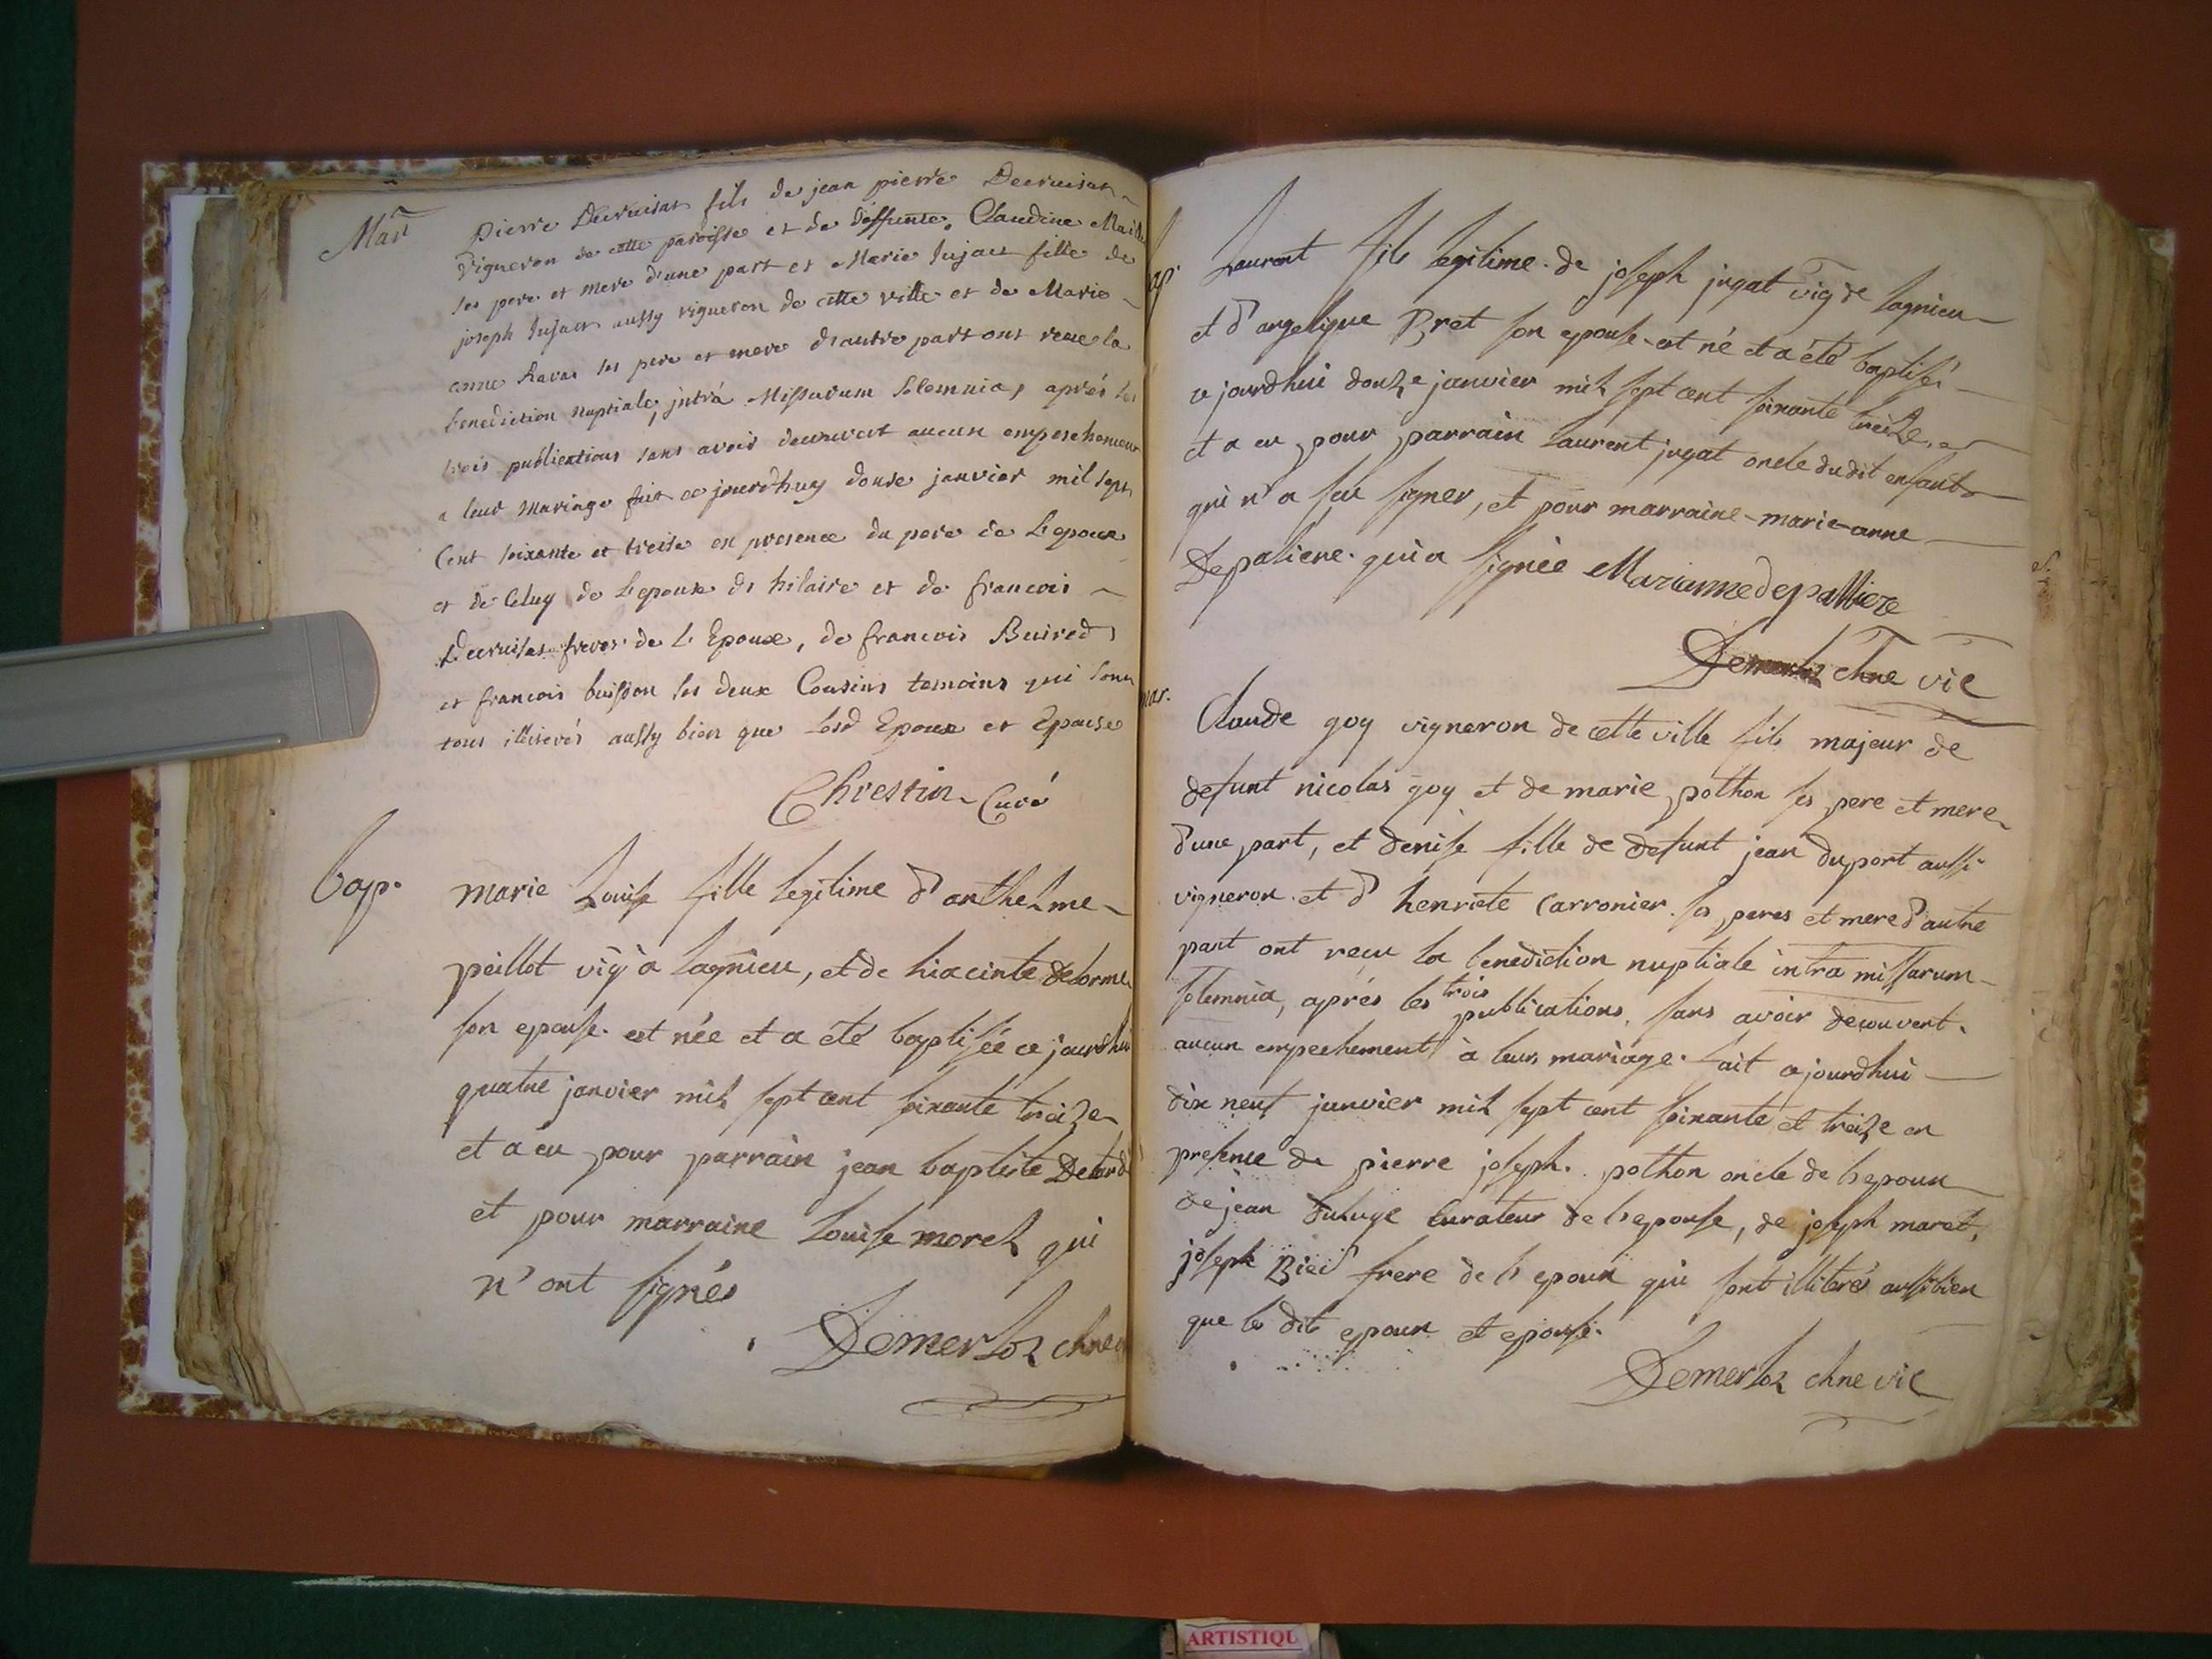 Mar
Pierre Decruisas fils de jean pierre Decruisas
vigneron de cette paroisse et de deffunte Claudine
ses pere et mere d'une part et Marie Jujat fille de
joseph Jujat aussy vigneron de cette ville et de Marie
anne Ravas ses pere et mere d'autre part ont receu la
benediction nuptiale, jntrà Missarum solemnia, aprés les
trois publications sans avoir decouvert aucun empeschement
a leur mariage fait ce jourdhuy douze janvier mil sept
Cent soixante et treise en presence du pere de L'epoux
et de Celuy de L'epouse de hilaire et de francois
Decruisas freres de L'Epoux, de francois Buired
et francois buisson ses deux Cousins temoins qui sont
tous illiterés aussy bien que Lesd Epoux et Epouse
Chrestin Curé
bap.
marie Louise fille legitime d'anthelme
peillot vig à lagnieu, et de hiacinte delorme
son epouse est née et a été baptisée ce jourdhui
quatre janvier mil sept cent soixante treize
et a eu pour parrain jean baptiste
et pour marraine Louise morel qui
n'ont signés
Demerloz chne
Laurent fils legitime de joseph jugat vig de lagnieu
et d'angelique Bret son epouse est né et a été baptisé
ce jourdhui douze janvier mil sept cent soixante treize
et a eu pour parrain laurent jugat oncle dudit enfant
qui n'a seu signer, et pour marraine marie-anne
Depaliere qui a signée Marianne depalliere
Demerloz chne vic
mar.
Claude goy vigneron de cette ville fils majeur de
defunt nicolas goy et de marie pothon ses pere et mere
d'une part, et denise fille de defunt jean duport aussi
vigneron et d'henriete Carronier ses peres et mere d'autre
part ont recu la benediction nuptiale intra missarum
solemnia, aprés les trois publications, sans avoir decouvert
aucun empechement à leurs mariage. fait cejourdhui
dix neuf janvier mil sept cent soixante et treize en
presence de pierre joseph pothon oncle de l'epoux
de jean curateur de l'epouse, de joseph maret,
joseph frere de l'epoux qui sont illiterés aussi bien
que les dits epoux et epouse.
Demerloz chne vic
ARTISTIQU